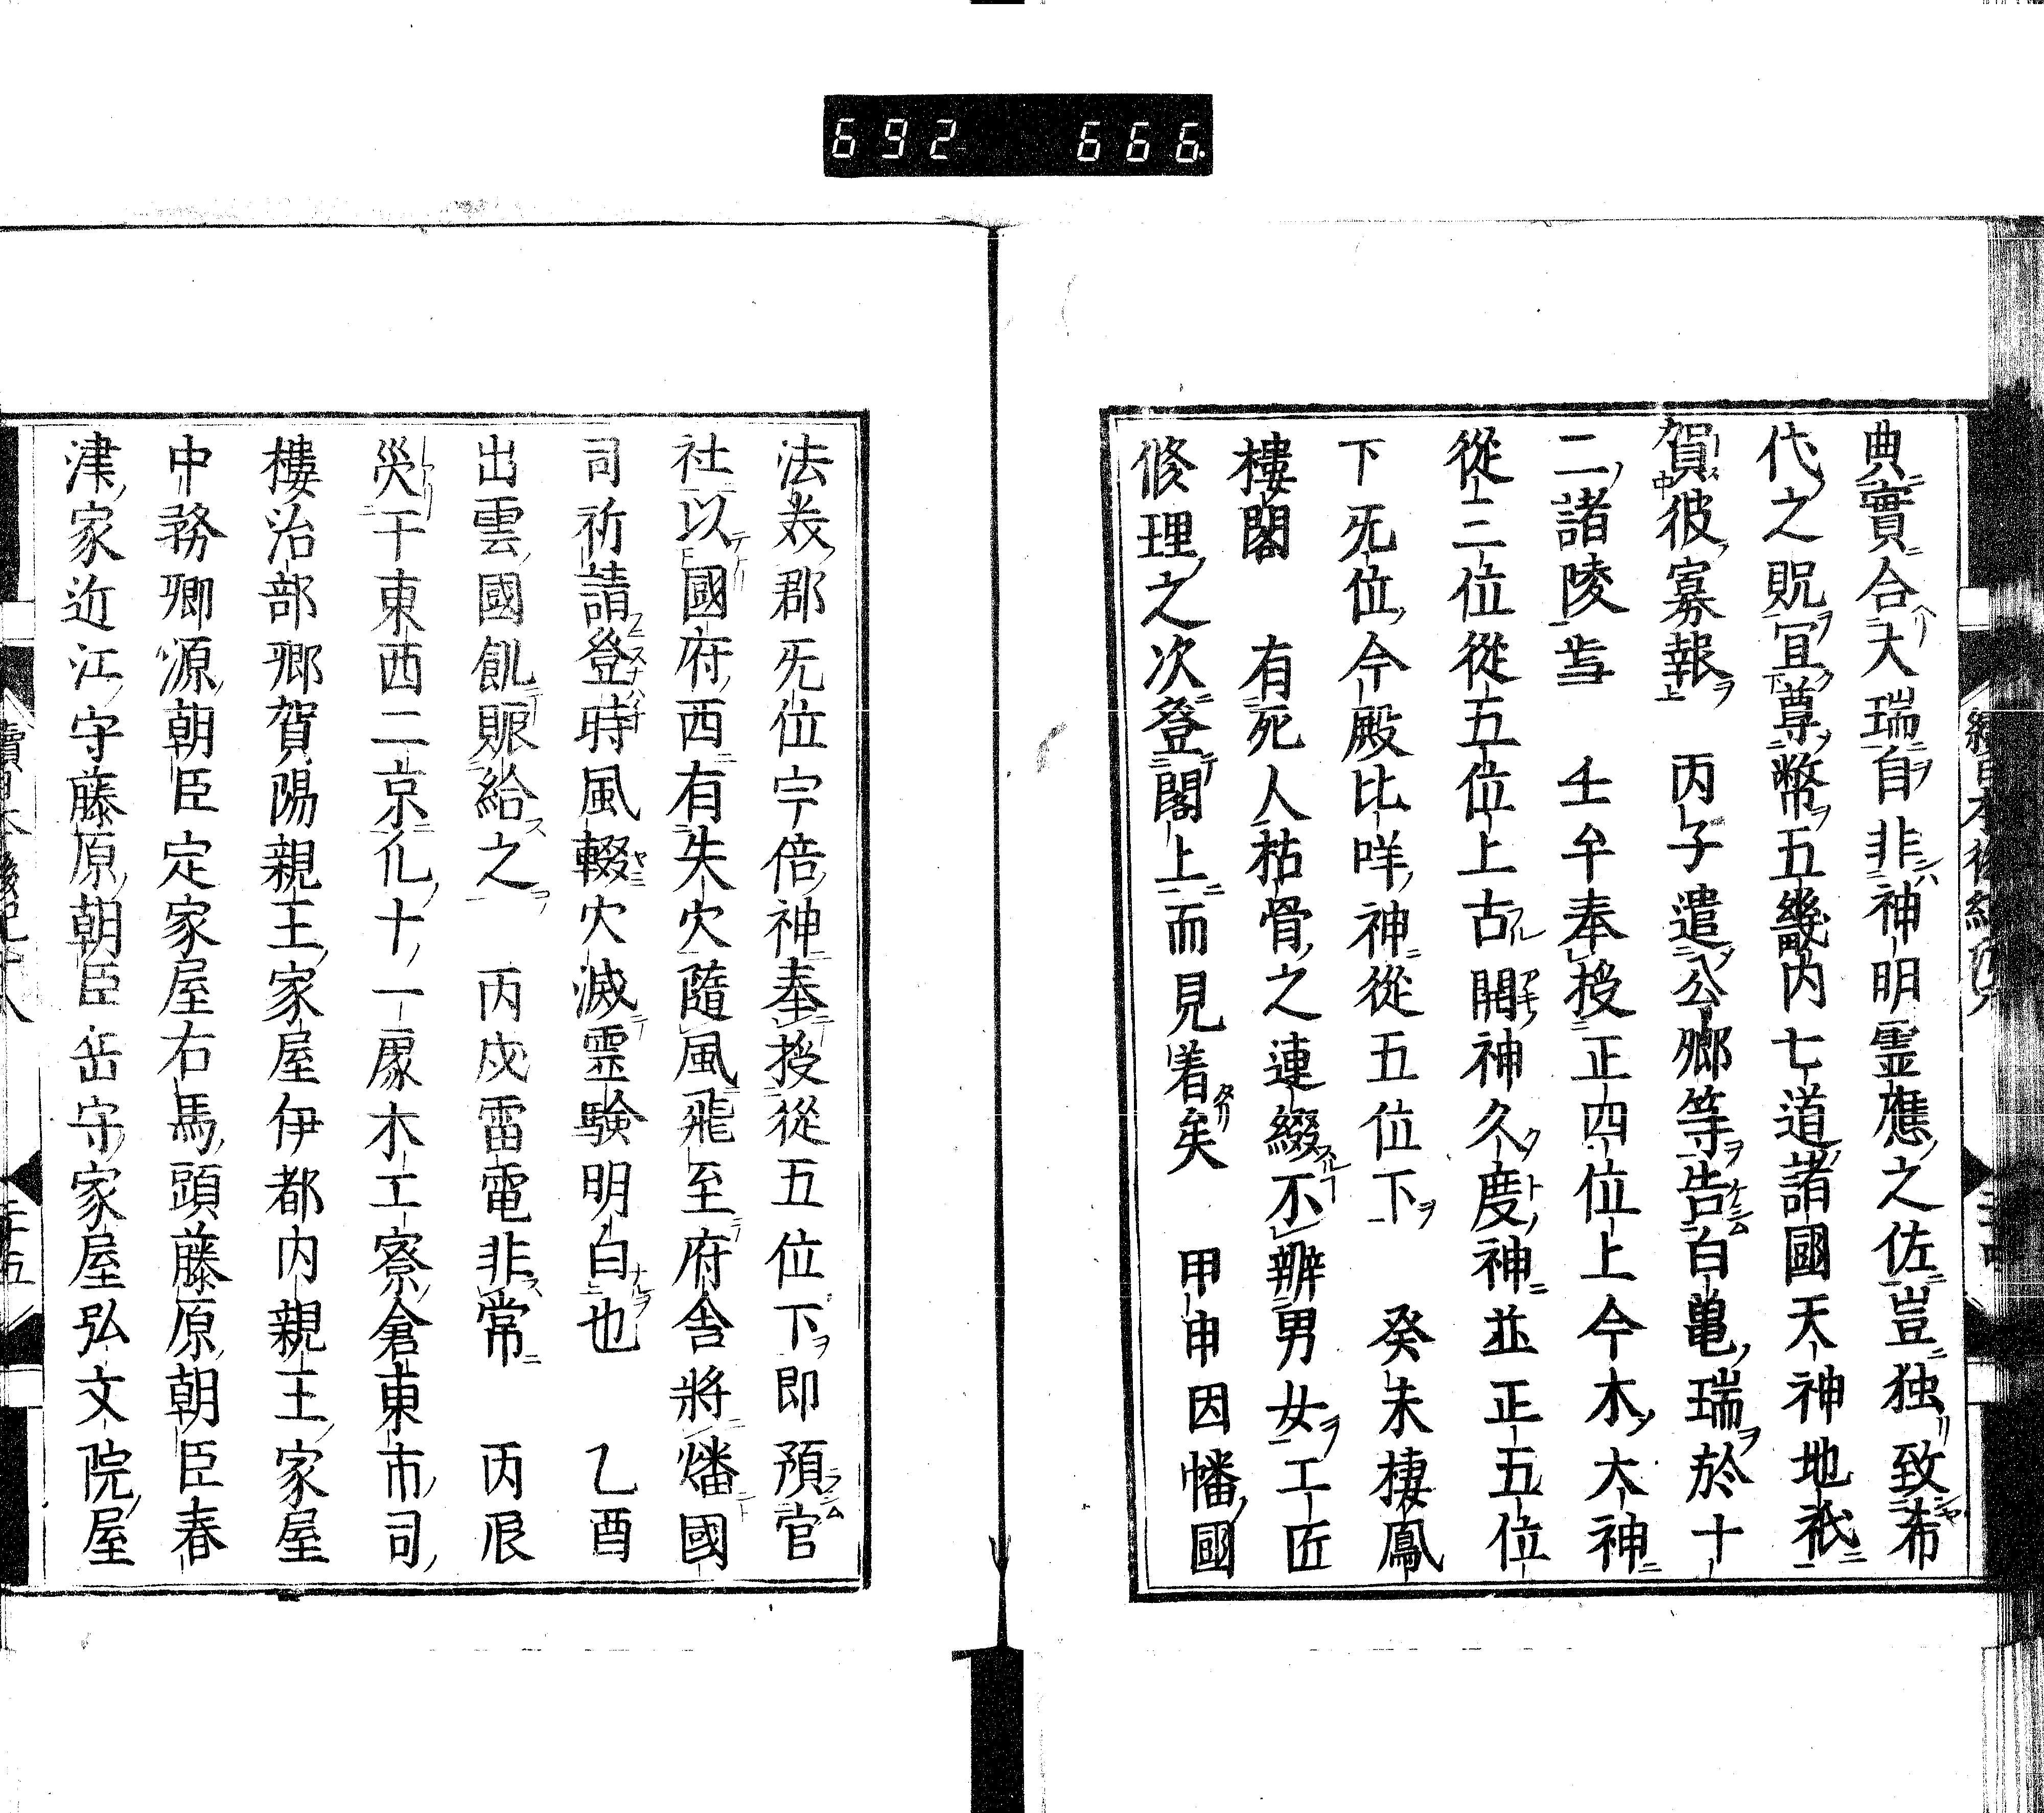 692 666
典實合大瑞自非神明霊應之佐豈独致希
代之貺冝尊幣五畿内七道諸國天神地祇
賀彼寡報 丙子遣公卿等告白亀瑞於十
二諸陵 壬午奉授正四位上今木大神
從三位從五位上古開神久度神並正五位
下旡位今殿比咩神從五位下 癸未棲鳳
樓閣 有死人枯骨之連綴不辨男女工匠
修理之次登閣上而見着矣 甲申因幡國
法羙郡旡位宇倍神奉授從五位下即預官
社以國府西有失火隨風飛至府舎將燔國
司祈請登時風輟火滅霊験明白也 乙酉
出雲國飢賑給之 丙戍雷電非常 丙辰
災于東西二京凢十一𠙚木工寮倉東市司
樓治部卿賀陽親王家屋伊都内親王家屋
中務卿源朝臣定家屋右馬頭藤原朝臣春
津家近江守藤原朝臣岳守家屋弘文院屋